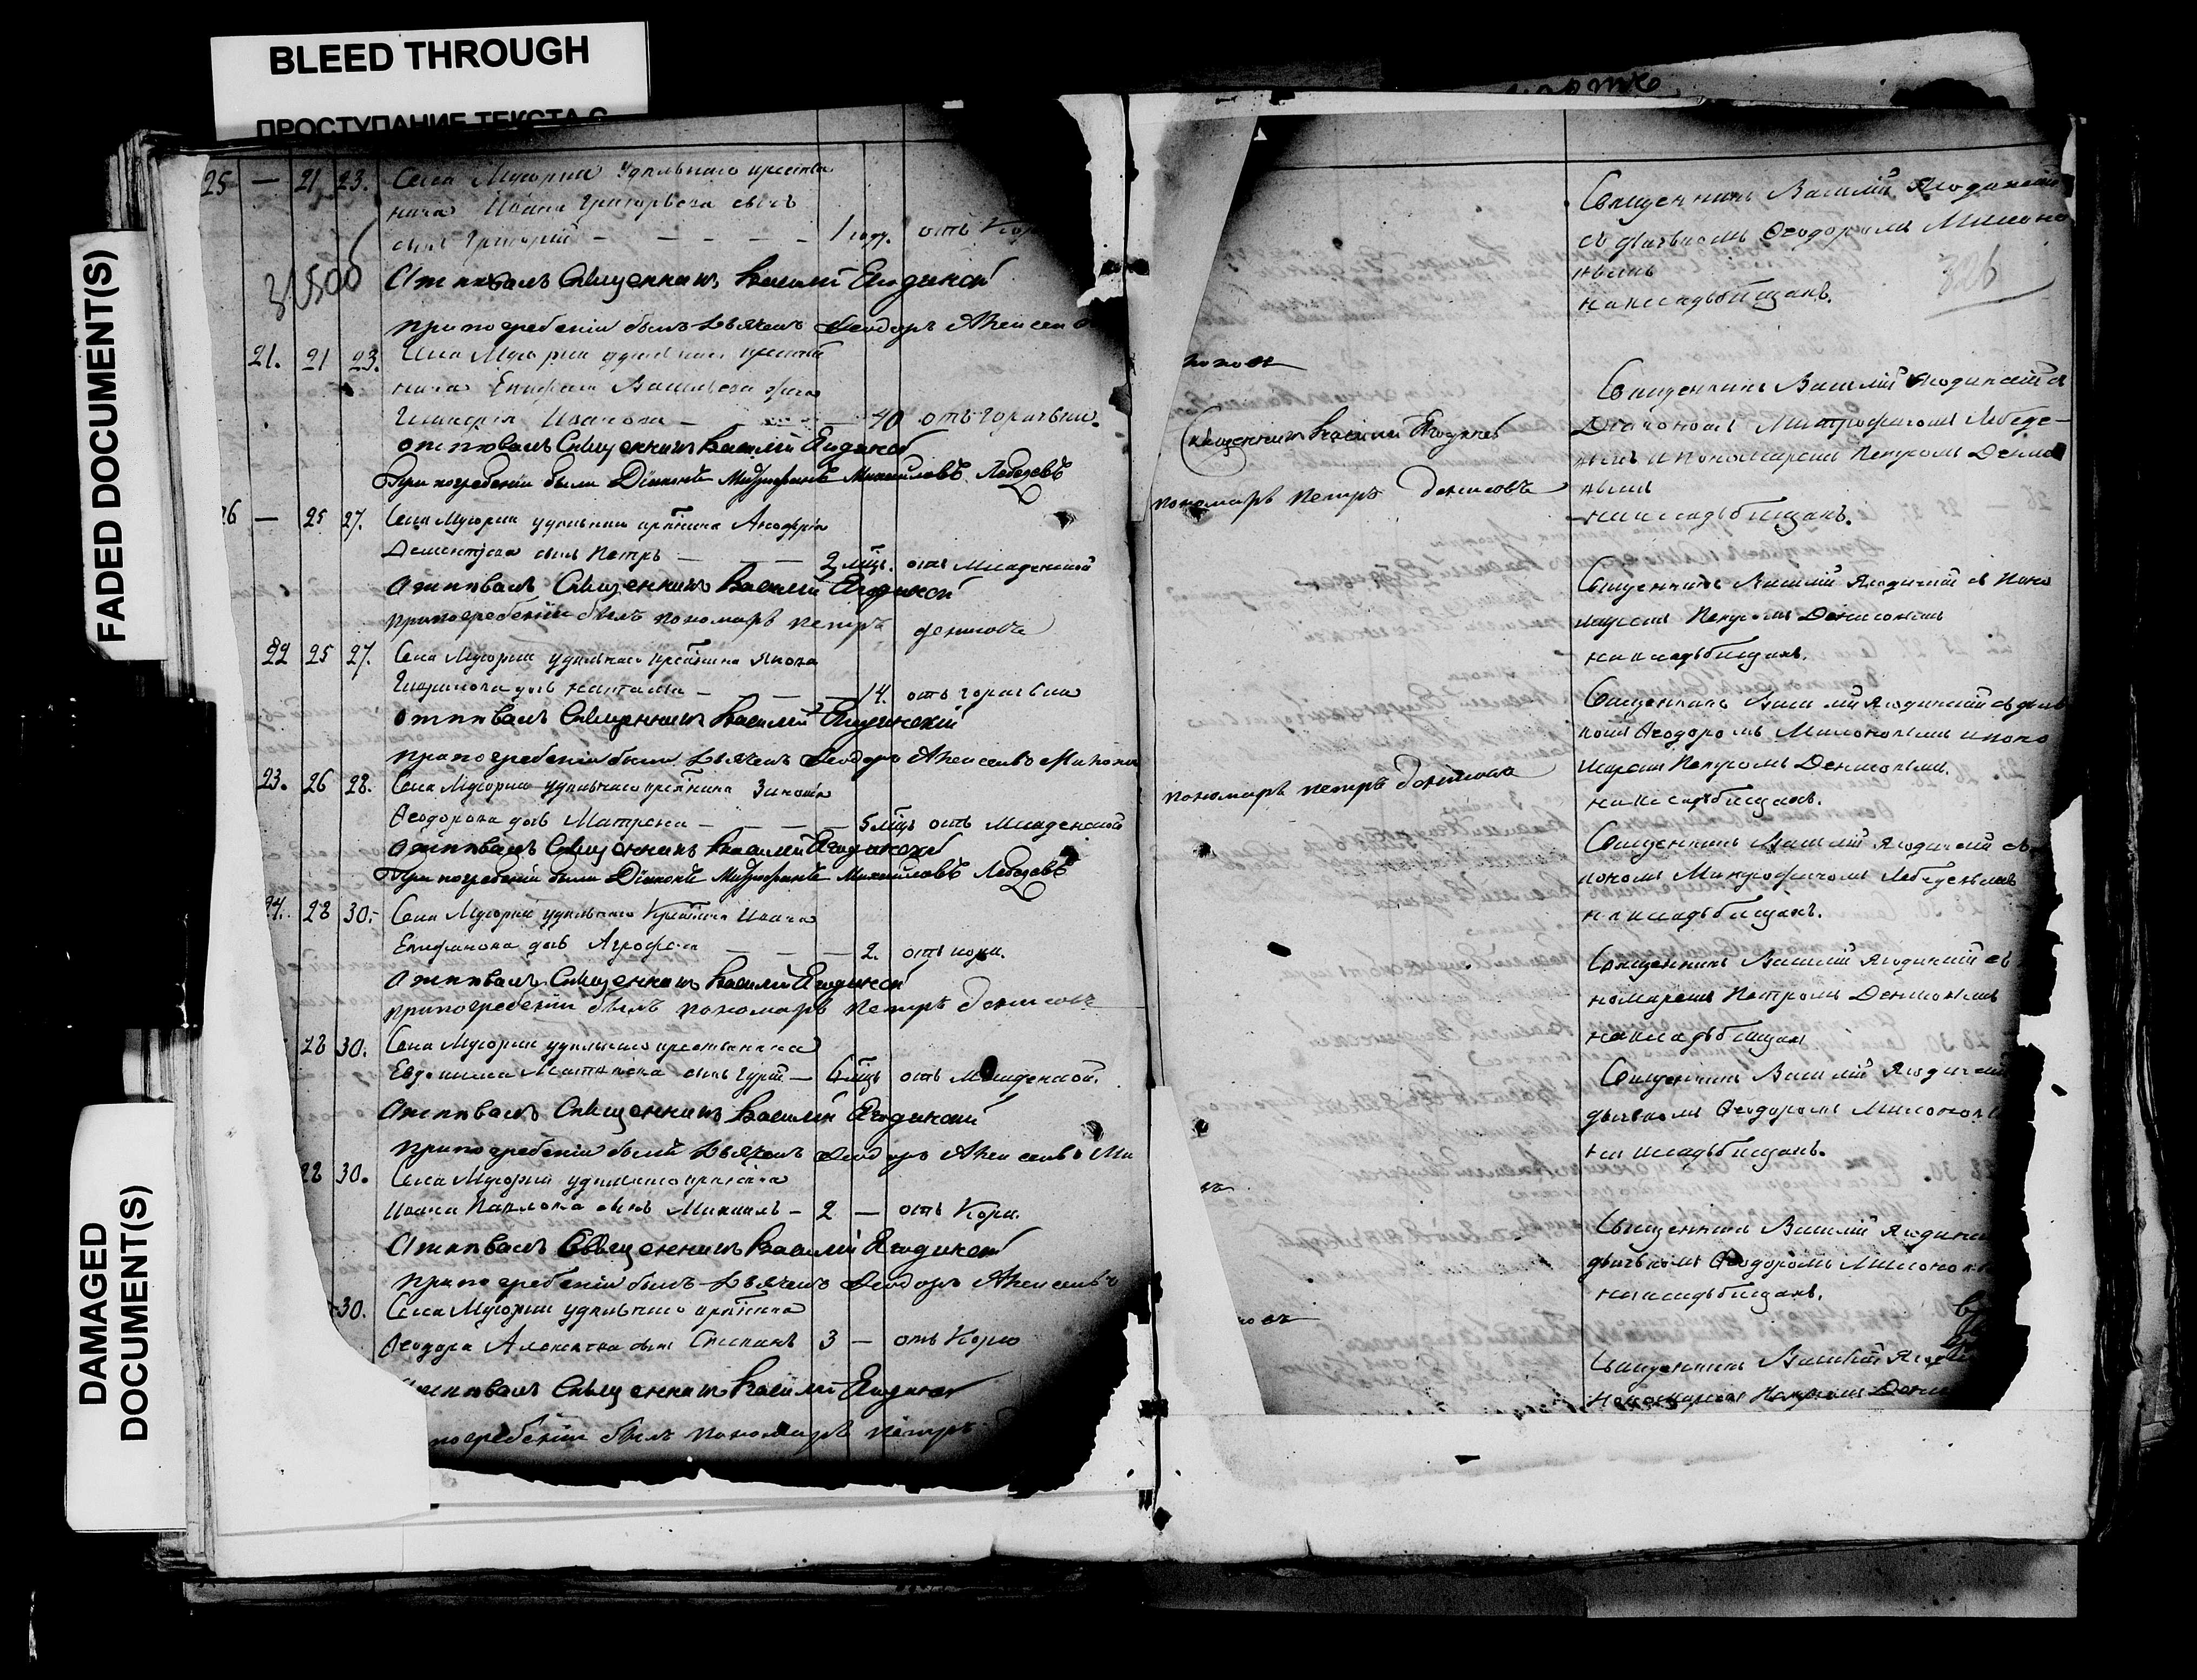 BLEED THROUGH
ПРОСТУПАНИЕ ТЕКСТА С
FADED DOCUMENT(S)
DAMAGED
DOCUMENT(S)
25 — 21 23. Села Мусорки удѣльнаго крестья
нина Ивана Григорьева сынъ
Григорій — — — — 1 году. отъ Кор
Отпѣвалъ Священникъ Василій Ягодинской
при погребеніи былъ дьячекъ Ѳеодоръ Алексеев
21. 21 23. Села Мусорки удѣльнаго крестья
нина Епифана Васильева жена
Ивановна — 40 отъ горячки.
отпѣвалъ Священникъ Василій Ягодинской
При погребеніи были Діаконъ Митрофанъ Михайловъ Лебедевъ
26 — 25 27. Села Мусорки удѣльнаго крѣстьнина
Дементьева сынъ Петръ — — — 2 мѣць. отъ младенской
Отпѣвалъ Священникъ Василій Ягодинской
при погребеніи былъ пономарь петръ денисовъ
22 25 27. Села Мусорки удѣльнаго крѣстьнина Якова
дочь Наталья — — — 14. отъ горячки
отпѣвалъ Священникъ Василий Ягодинскій
при погребеніи были дьячекъ Ѳеодоръ Алексеевъ Милоно
23. 26 28. Села Мусорки удѣльнаго крѣстьнина
Ѳеодорова дочь Матрена — — — — 5 мѣць отъ Младенской
Отпѣвалъ Священникъ Василій Ягодинской
При погребеніи были Діаконъ Митрофанъ Михайловъ Лебедевъ
24. 28 30. Села Мусорки удѣльнаго Крѣстьнина Ивана
Епифанова дочь Агрофена — — — — 2. отъ кори.
Отпѣвалъ Священникъ Василій Ягодинской
при погребеніи былъ пономарь петръ денисовъ
28 30. Села Мусорки удѣльнаго крестьянина
сынъ Гурій — 6 мѣць отъ Младенской.
Отпѣвалъ Священникъ Василій Ягодинской
при погребеніи былъ дьячекъ Ѳеодоръ Алексеевъ Ми
28 30. Села Мусорки удѣльнаго крѣстьнина
Ивана Павлова сынъ Михаилъ — 2 — отъ Кори.
Отпѣвалъ Священникъ Василій Ягодинской
при погребеніи былъ дьячекъ Ѳеодоръ Алексеевъ
30. Села Мусорки удѣльнаго крѣстьнина
Ѳеодора сынъ Степанъ 3 — отъ Кори
Отпѣвалъ Священникъ Василій Ягодинской
погребеніи былъ пономарь петръ
Священникъ Василій Ягодинскій
съ дьячкомъ Ѳеодоромъ Милоно
вымъ
на кладбищахъ.
326
Священникъ Василій Ягодинскій съ
Діакономъ Митрофаномъ Лебеде-
вымъ и пономаремъ Петромъ Денисо
вымъ
на кладбищахъ.
Священникъ Василій Ягодинской
пономарь петръ денисовъ
Священникъ Василій Ягодинскій съ Поно
маремъ Петромъ Денисовымъ
на кладбищахъ.
Священникъ Василій Ягодинскій съ дьяч
комъ Ѳеодоромъ Милоновымъ и поно
маремъ Петромъ Денисовымъ.
на кладбищахъ.
пономарь петръ денисовъ
Священникъ Василій Ягодинскій съ
кономъ Митрофаномъ Лебедевымъ
на кладбищахъ.
Священникъ Василій Ягодинскій съ
номаремъ Петромъ Денисовымъ
на кладбищахъ
Священникъ Василій Ягодинскій
дьячкомъ Ѳеодоромъ Милоновы
на кладбищахъ.
Священникъ Василій Ягодинс
дьячкомъ Ѳеодоромъ Милонов
на кладбищахъ.
Священникъ Василій Ягоди
Пономаремъ Петромъ Дени